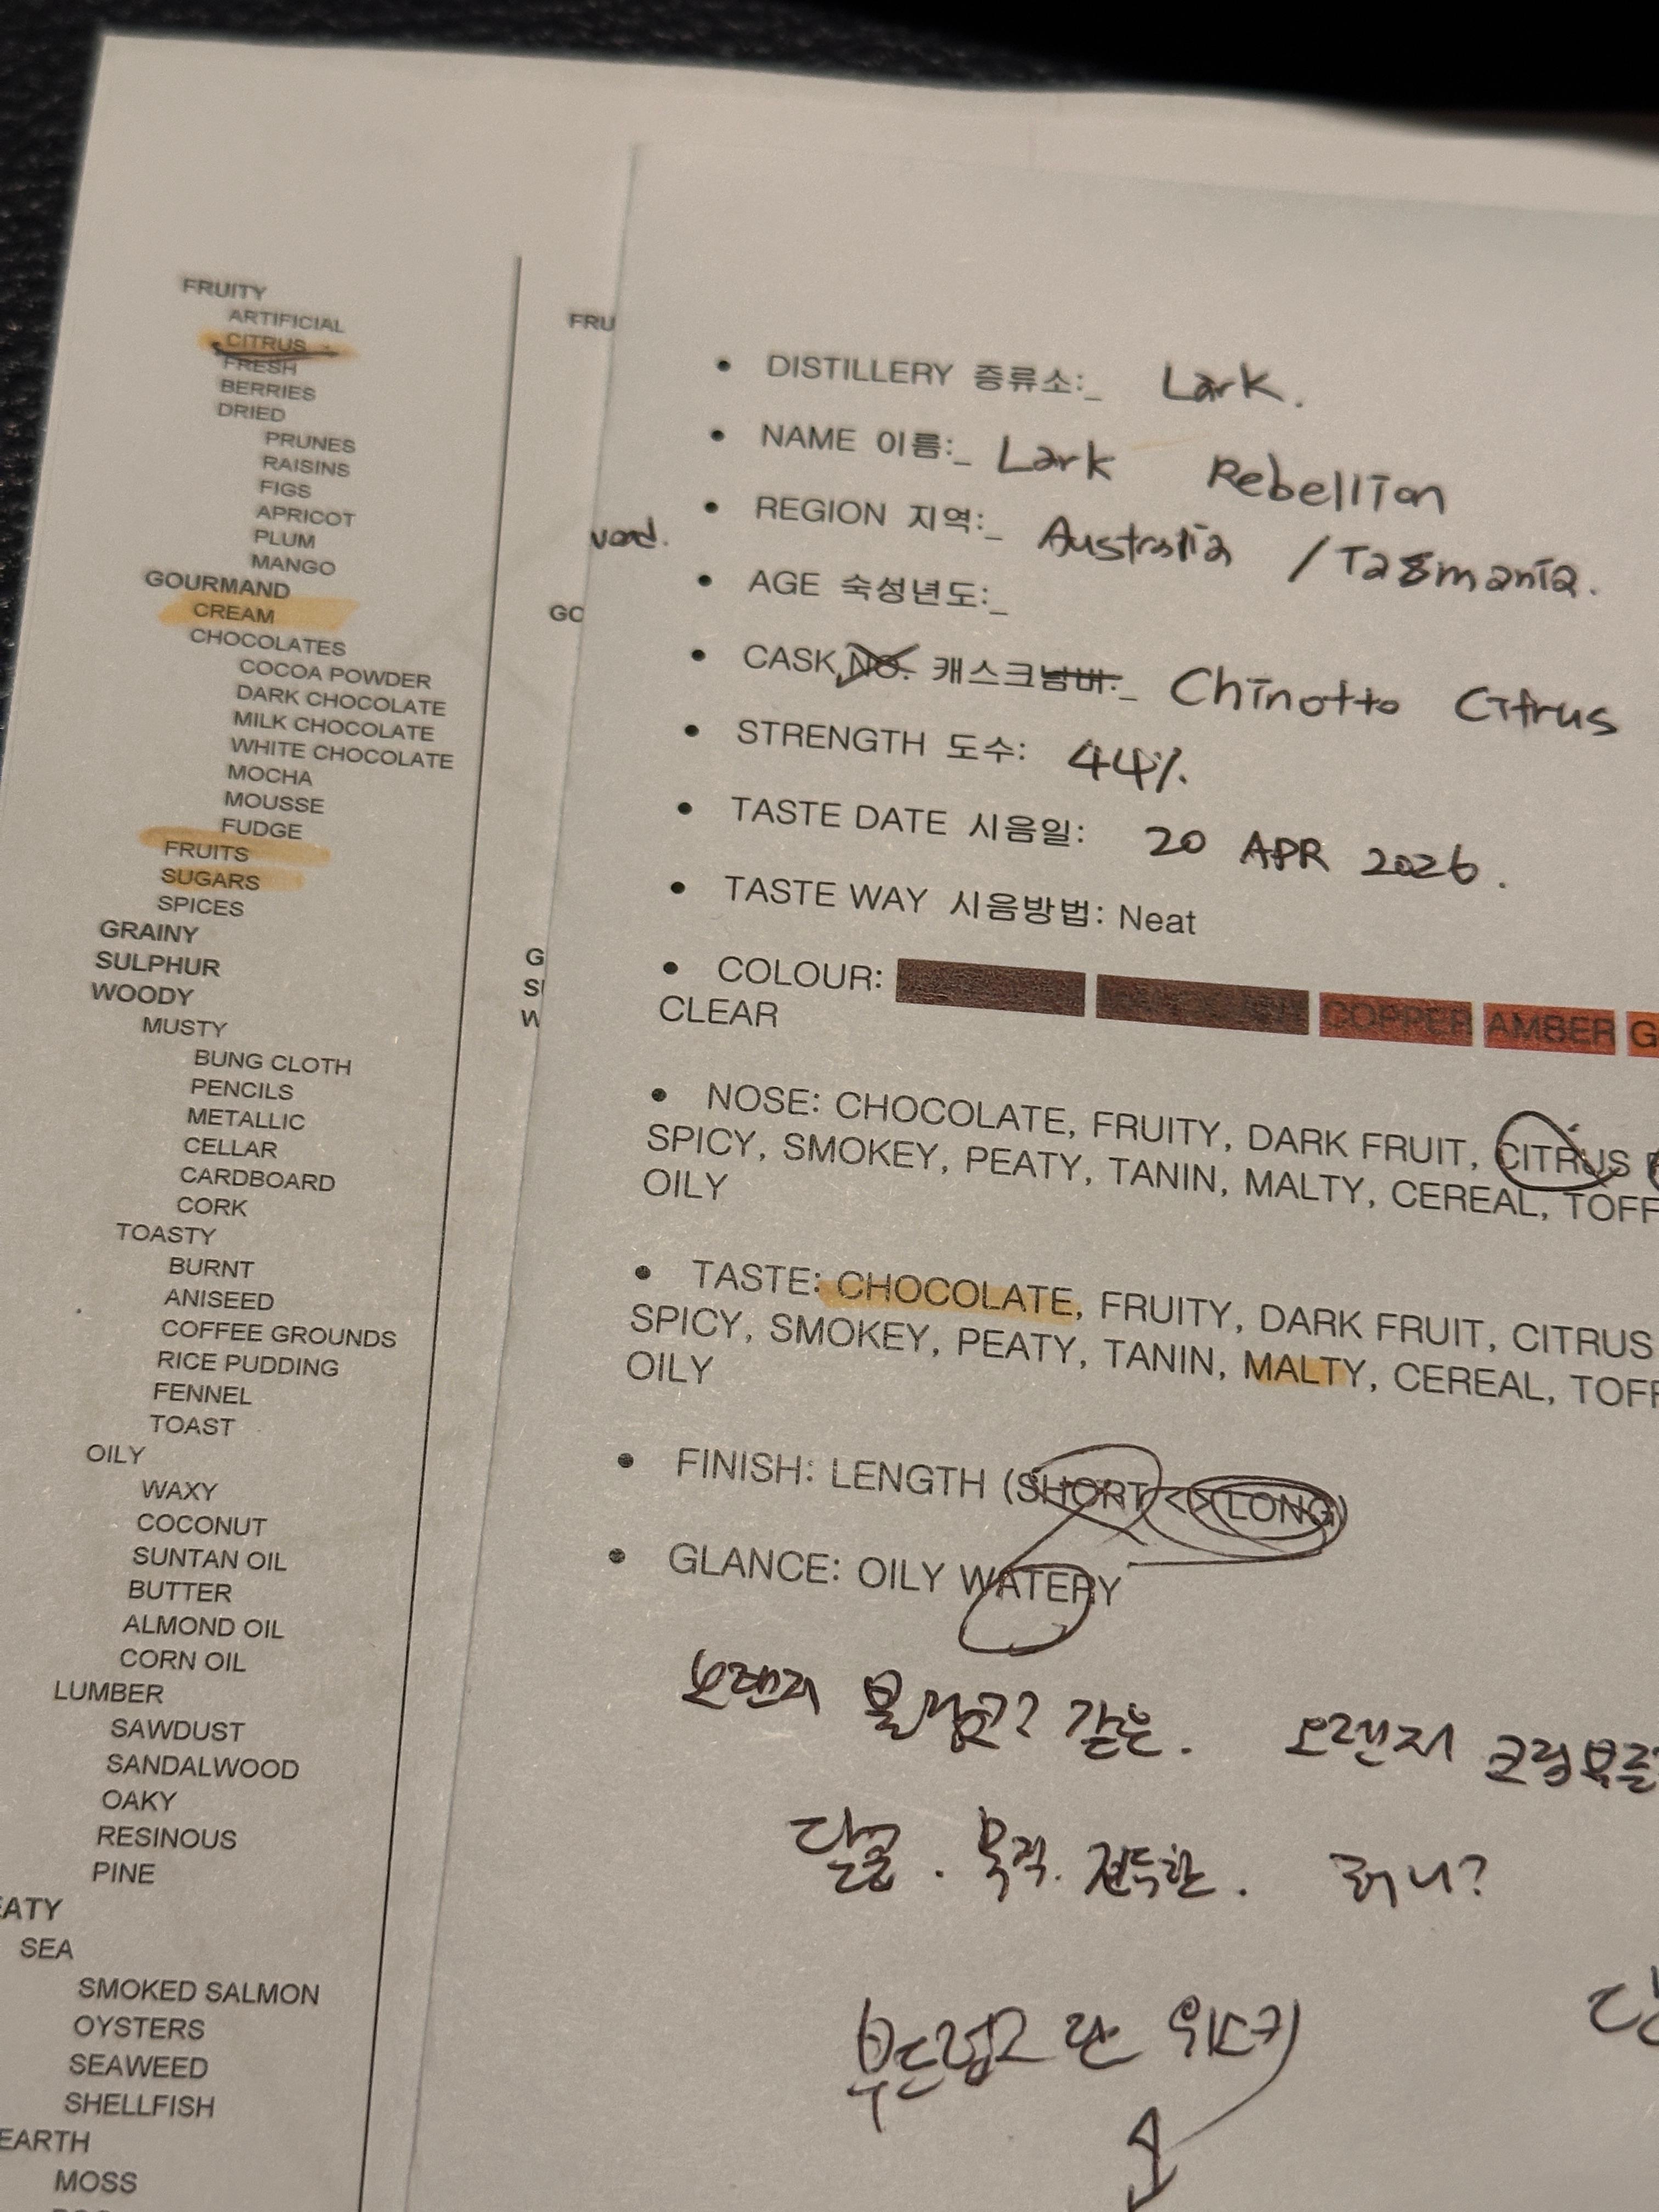 FRUITY
ARTIFICIAL
CITRUS
FRESH
BERRIES
DRIED
PRUNES
RAISINS
FIGS
APRICOT
PLUM
MANGO
GOURMAND
CREAM
CHOCOLATES
COCOA POWDER
DARK CHOCOLATE
MILK CHOCOLATE
WHITE CHOCOLATE
MOCHA
MOUSSE
FUDGE
FRUITS
SUGARS
SPICES
GRAINY
SULPHUR
WOODY
MUSTY
BUNG CLOTH
PENCILS
METALLIC
CELLAR
CARDBOARD
CORK
TOASTY
BURNT
ANISEED
COFFEE GROUNDS
RICE PUDDING
FENNEL
TOAST
OILY
WAXY
COCONUT
SUNTAN OIL
BUTTER
ALMOND OIL
CORN OIL
LUMBER
SAWDUST
SANDALWOOD
OAKY
RESINOUS
PINE
EATY
SEA
SMOKED SALMON
OYSTERS
SEAWEED
SHELLFISH
EARTH
MOSS
FRU
GO
G
S
W
• DISTILLERY 증류소:_ Lark.
• NAME 이름:_ Lark Rebellion
• REGION 지역:_ Australia / Tasmania.
• AGE 숙성년도:_
• CASK NO. 캐스크넘버:_ Chinotto Citrus
• STRENGTH 도수: 44%.
• TASTE DATE 시음일: 20 APR 2026.
• TASTE WAY 시음방법: Neat
• COLOUR: COPPER AMBER G
CLEAR
• NOSE: CHOCOLATE, FRUITY, DARK FRUIT, CITRUS
SPICY, SMOKEY, PEATY, TANIN, MALTY, CEREAL, TOFF
OILY
• TASTE: CHOCOLATE, FRUITY, DARK FRUIT, CITRUS
SPICY, SMOKEY, PEATY, TANIN, MALTY, CEREAL, TOFF
OILY
• FINISH: LENGTH (SHORT <> LONG)
• GLANCE: OILY WATERY
오렌지 같은. 오렌지
달콤. 묵직. 진득한.
부드럽고 단 위스키